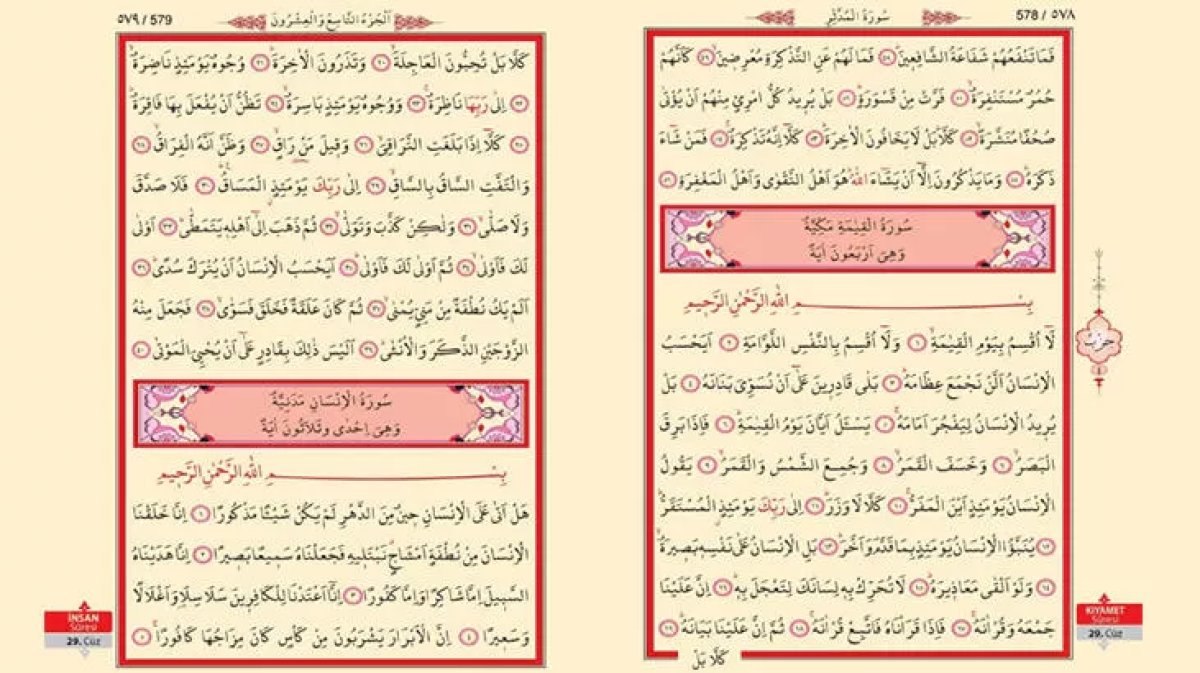 578 / ٥٧٨
سُورَةُ الْمُدَّثِّرِ
فَمَا تَنْفَعُهُمْ شَفَاعَةُ الشَّافِعِينَۜ ﴿٤٨﴾ فَمَا لَهُمْ عَنِ التَّذْكِرَةِ مُعْرِضِينَۙ ﴿٤٩﴾ كَاَنَّهُمْ
حُمُرٌ مُسْتَنْفِرَةٌۙ ﴿٥٠﴾ فَرَّتْ مِنْ قَسْوَرَةٍۜ ﴿٥١﴾ بَلْ يُرِيدُ كُلُّ امْرِئٍ مِنْهُمْ اَنْ يُؤْتٰى
صُحُفًا مُنَشَّرَةًۙ ﴿٥٢﴾ كَلَّاۜ بَلْ لَا يَخَافُونَ الْاٰخِرَةَۜ ﴿٥٣﴾ كَلَّٓا اِنَّهُ تَذْكِرَةٌۚ ﴿٥٤﴾ فَمَنْ شَٓاءَ
ذَكَرَهُۜ ﴿٥٥﴾ وَمَا يَذْكُرُونَ اِلَّٓا اَنْ يَشَٓاءَ اللّٰهُۜ هُوَ اَهْلُ التَّقْوٰى وَاَهْلُ الْمَغْفِرَةِ ﴿٥٦﴾
سُورَةُ الْقِيٰمَةِ مَكِّيَّةٌ
وَهِيَ اَرْبَعُونَ اٰيَةً
بِسْــــــمِ اللّٰهِ الرَّحْمٰنِ الرَّحِيمِ
لَٓا اُقْسِمُ بِيَوْمِ الْقِيٰمَةِۙ ﴿١﴾ وَلَٓا اُقْسِمُ بِالنَّفْسِ اللَّوَّامَةِۜ ﴿٢﴾ اَيَحْسَبُ
الْاِنْسَانُ اَلَّنْ نَجْمَعَ عِظَامَهُۜ ﴿٣﴾ بَلٰى قَادِرِينَ عَلٰٓى اَنْ نُسَوِّيَ بَنَانَهُ ﴿٤﴾ بَلْ
يُرِيدُ الْاِنْسَانُ لِيَفْجُرَ اَمَامَهُۚ ﴿٥﴾ يَسْـَٔلُ اَيَّانَ يَوْمُ الْقِيٰمَةِۜ ﴿٦﴾ فَاِذَا بَرِقَ
الْبَصَرُۙ ﴿٧﴾ وَخَسَفَ الْقَمَرُۙ ﴿٨﴾ وَجُمِعَ الشَّمْسُ وَالْقَمَرُۙ ﴿٩﴾ يَقُولُ
الْاِنْسَانُ يَوْمَئِذٍ اَيْنَ الْمَفَرُّۚ ﴿١٠﴾ كَلَّا لَا وَزَرَۜ ﴿١١﴾ اِلٰى رَبِّكَ يَوْمَئِذٍ الْمُسْتَقَرُّۜ
﴿١٢﴾ يُنَبَّؤُا الْاِنْسَانُ يَوْمَئِذٍ بِمَا قَدَّمَ وَاَخَّرَۜ ﴿١٣﴾ بَلِ الْاِنْسَانُ عَلٰى نَفْسِهِ بَصِيرَةٌۙ
﴿١٤﴾ وَلَوْ اَلْقٰى مَعَاذِيرَهُۜ ﴿١٥﴾ لَا تُحَرِّكْ بِهِ لِسَانَكَ لِتَعْجَلَ بِهِۜ ﴿١٦﴾ اِنَّ عَلَيْنَا
جَمْعَهُ وَقُرْاٰنَهُۚ ﴿١٧﴾ فَاِذَا قَرَأْنَاهُ فَاتَّبِعْ قُرْاٰنَهُۚ ﴿١٨﴾ ثُمَّ اِنَّ عَلَيْنَا بَيَانَهُۜ ﴿١٩﴾
كَلَّا بَلْ
حزب
٤
KIYAMET
Sûresi
29. Cüz
٥٧٩ / 579
اَلْجُزْءُ التَّاسِعُ وَالْعِشْرُونَ
كَلَّا بَلْ تُحِبُّونَ الْعَاجِلَةَۙ ﴿٢٠﴾ وَتَذَرُونَ الْاٰخِرَةَۜ ﴿٢١﴾ وُجُوهٌ يَوْمَئِذٍ نَاضِرَةٌۙ
﴿٢٢﴾ اِلٰى رَبِّهَا نَاظِرَةٌۚ ﴿٢٣﴾ وَوُجُوهٌ يَوْمَئِذٍ بَاسِرَةٌۙ ﴿٢٤﴾ تَظُنُّ اَنْ يُفْعَلَ بِهَا فَاقِرَةٌۜ
﴿٢٥﴾ كَلَّٓا اِذَا بَلَغَتِ التَّرَاقِيَۙ ﴿٢٦﴾ وَقِيلَ مَنْ رَاقٍۙ ﴿٢٧﴾ وَظَنَّ اَنَّهُ الْفِرَاقُۙ ﴿٢٨﴾
وَالْتَفَّتِ السَّاقُ بِالسَّاقِۙ ﴿٢٩﴾ اِلٰى رَبِّكَ يَوْمَئِذٍ الْمَسَاقُۜ ﴿٣٠﴾ فَلَا صَدَّقَ
وَلَا صَلّٰىۙ ﴿٣١﴾ وَلٰكِنْ كَذَّبَ وَتَوَلّٰىۙ ﴿٣٢﴾ ثُمَّ ذَهَبَ اِلٰٓى اَهْلِهِ يَتَمَطّٰىۜ ﴿٣٣﴾ اَوْلٰى
لَكَ فَاَوْلٰىۙ ﴿٣٤﴾ ثُمَّ اَوْلٰى لَكَ فَاَوْلٰىۜ ﴿٣٥﴾ اَيَحْسَبُ الْاِنْسَانُ اَنْ يُتْرَكَ سُدًىۜ ﴿٣٦﴾
اَلَمْ يَكُ نُطْفَةً مِنْ مَنِيٍّ يُمْنٰىۙ ﴿٣٧﴾ ثُمَّ كَانَ عَلَقَةً فَخَلَقَ فَسَوّٰىۙ ﴿٣٨﴾ فَجَعَلَ مِنْهُ
الزَّوْجَيْنِ الذَّكَرَ وَالْاُنْثٰىۜ ﴿٣٩﴾ اَلَيْسَ ذٰلِكَ بِقَادِرٍ عَلٰٓى اَنْ يُحْيِيَ الْمَوْتٰى ﴿٤٠﴾
سُورَةُ الْاِنْسَانِ مَدَنِيَّةٌ
وَهِيَ اِحْدٰى وَثَلَاثُونَ اٰيَةً
بِسْــــــمِ اللّٰهِ الرَّحْمٰنِ الرَّحِيمِ
هَلْ اَتٰى عَلَى الْاِنْسَانِ حِينٌ مِنَ الدَّهْرِ لَمْ يَكُنْ شَيْـًٔا مَذْكُورًا ﴿١﴾ اِنَّا خَلَقْنَا
الْاِنْسَانَ مِنْ نُطْفَةٍ اَمْشَاجٍۗ نَبْتَلِيهِ فَجَعَلْنَاهُ سَمِيعًا بَصِيرًا ﴿٢﴾ اِنَّا هَدَيْنَاهُ
السَّبِيلَ اِمَّا شَاكِرًا وَاِمَّا كَفُورًا ﴿٣﴾ اِنَّٓا اَعْتَدْنَا لِلْكَافِرِينَ سَلَاسِلَا وَاَغْلَالًا
وَسَعِيرًا ﴿٤﴾ اِنَّ الْاَبْرَارَ يَشْرَبُونَ مِنْ كَأْسٍ كَانَ مِزَاجُهَا كَافُورًاۚ ﴿٥﴾
İNSAN
Sûresi
29. Cüz